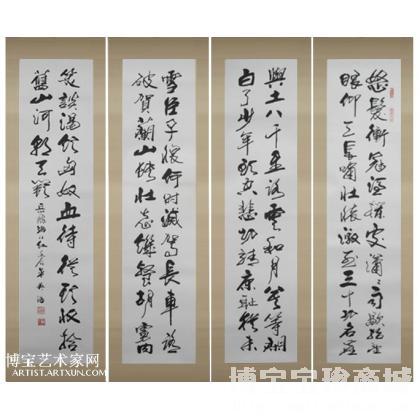 怒髮衝冠憑欄處瀟瀟雨歇抬望
眼仰天長嘯壯懷激烈三十功名塵
與土八千里路雲和月莫等閑
白了少年頭空悲切靖康恥猶未
雪臣子恨何時滅駕長車踏
破賀蘭山缺壯志饑餐胡虜肉
笑談渴飲匈奴血待從頭收拾
舊山河朝天闕 岳飛滿江紅
博宝艺术家网
ARTIST.ARTXUN.COM
商城